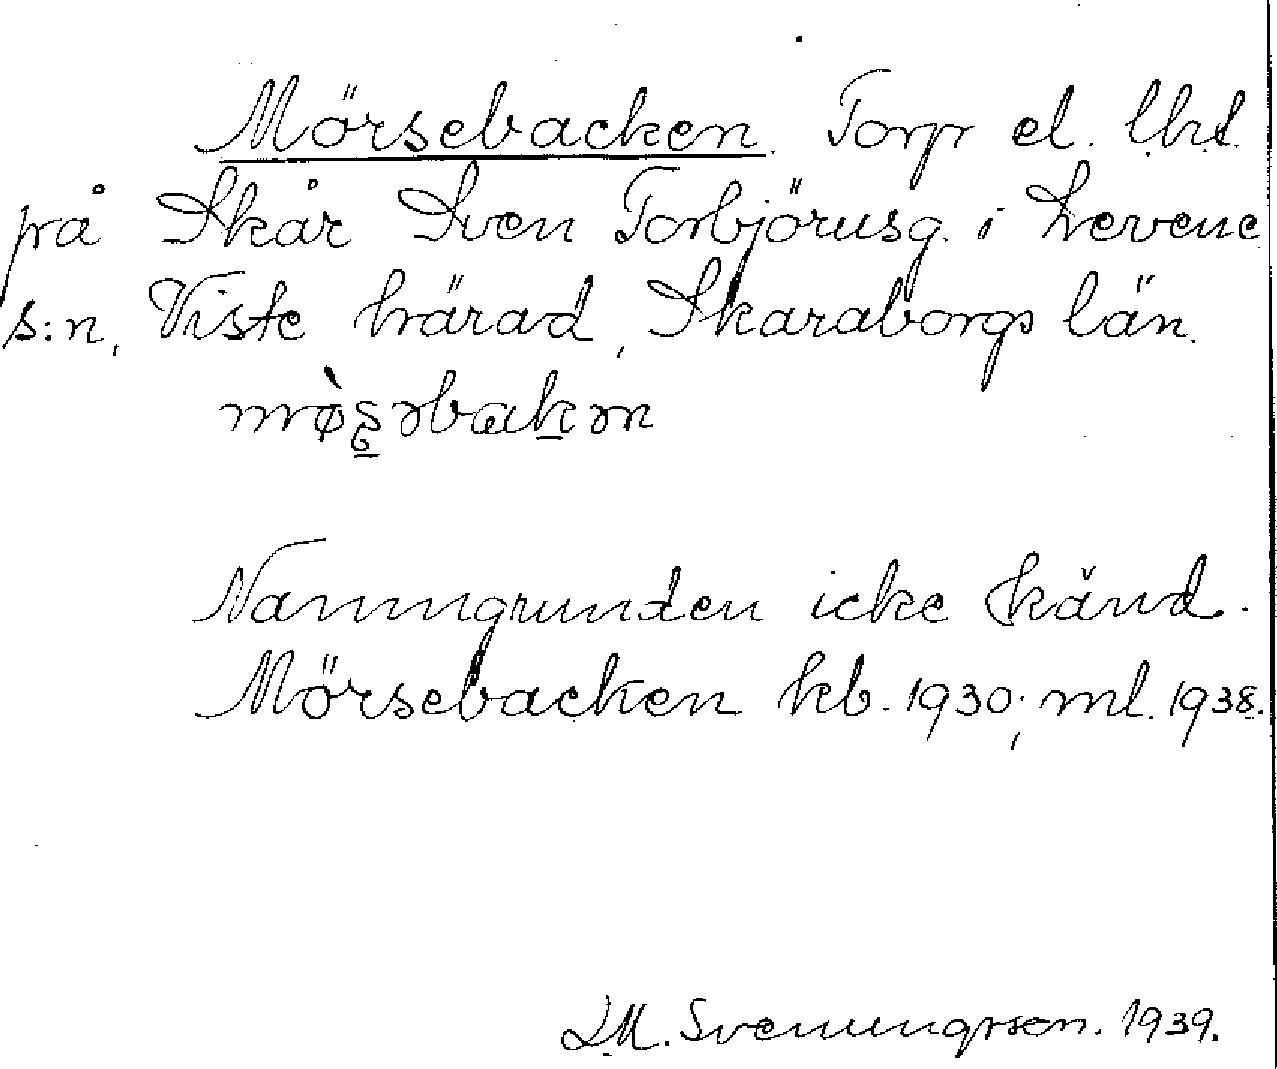 Mörsebacken. Torp el. lht.
på Skår Sven Torbjörnsg. i Levene
s:n, Viste härad, Skaraborgs län.
Namngrunden icke känd.
Mörsebacken kb. 1930; ml. 1938.
D.M. Svenungsson. 1939.